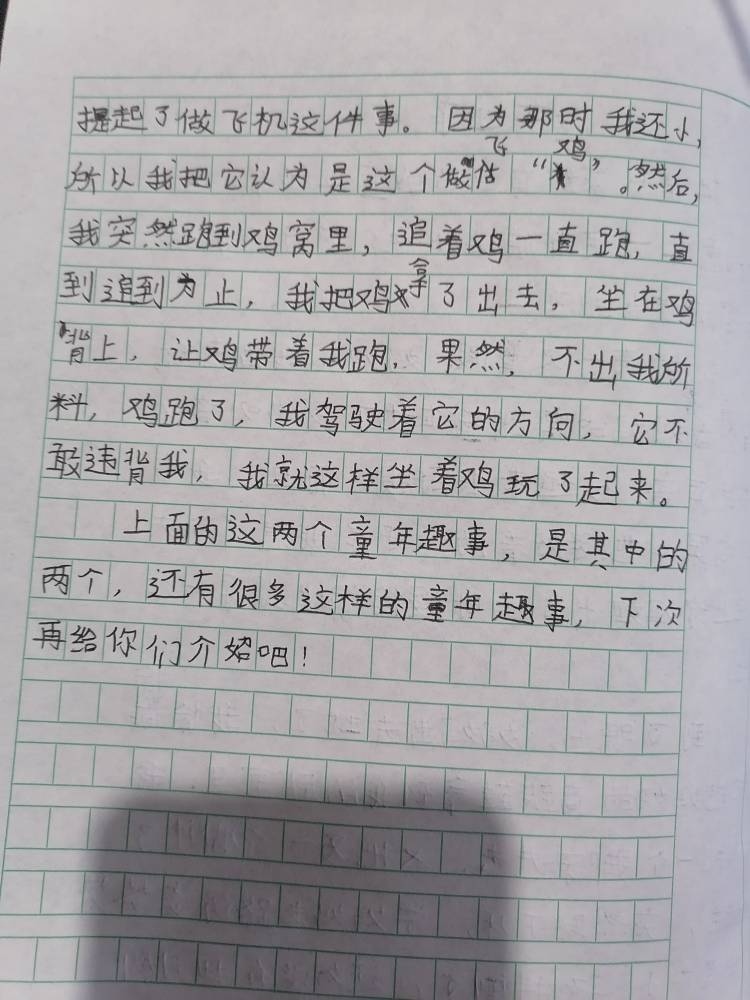 提起了做飞机这件事。因为那时我还小,
所以我把它认为是这个做估“飞鸡”。然后,
我突然跑到鸡窝里，追着鸡一直跑，直
到追到为止，我把鸡拿了出去，坐在鸡
背上，让鸡带着我跑，果然，不出我所
料，鸡跑了，我驾驶着它的方向，它不
敢违背我，我就这样坐着鸡玩了起来。
上面的这两个童年趣事，是其中的
两个，还有很多这样的童年趣事，下次
再给你们介绍吧！